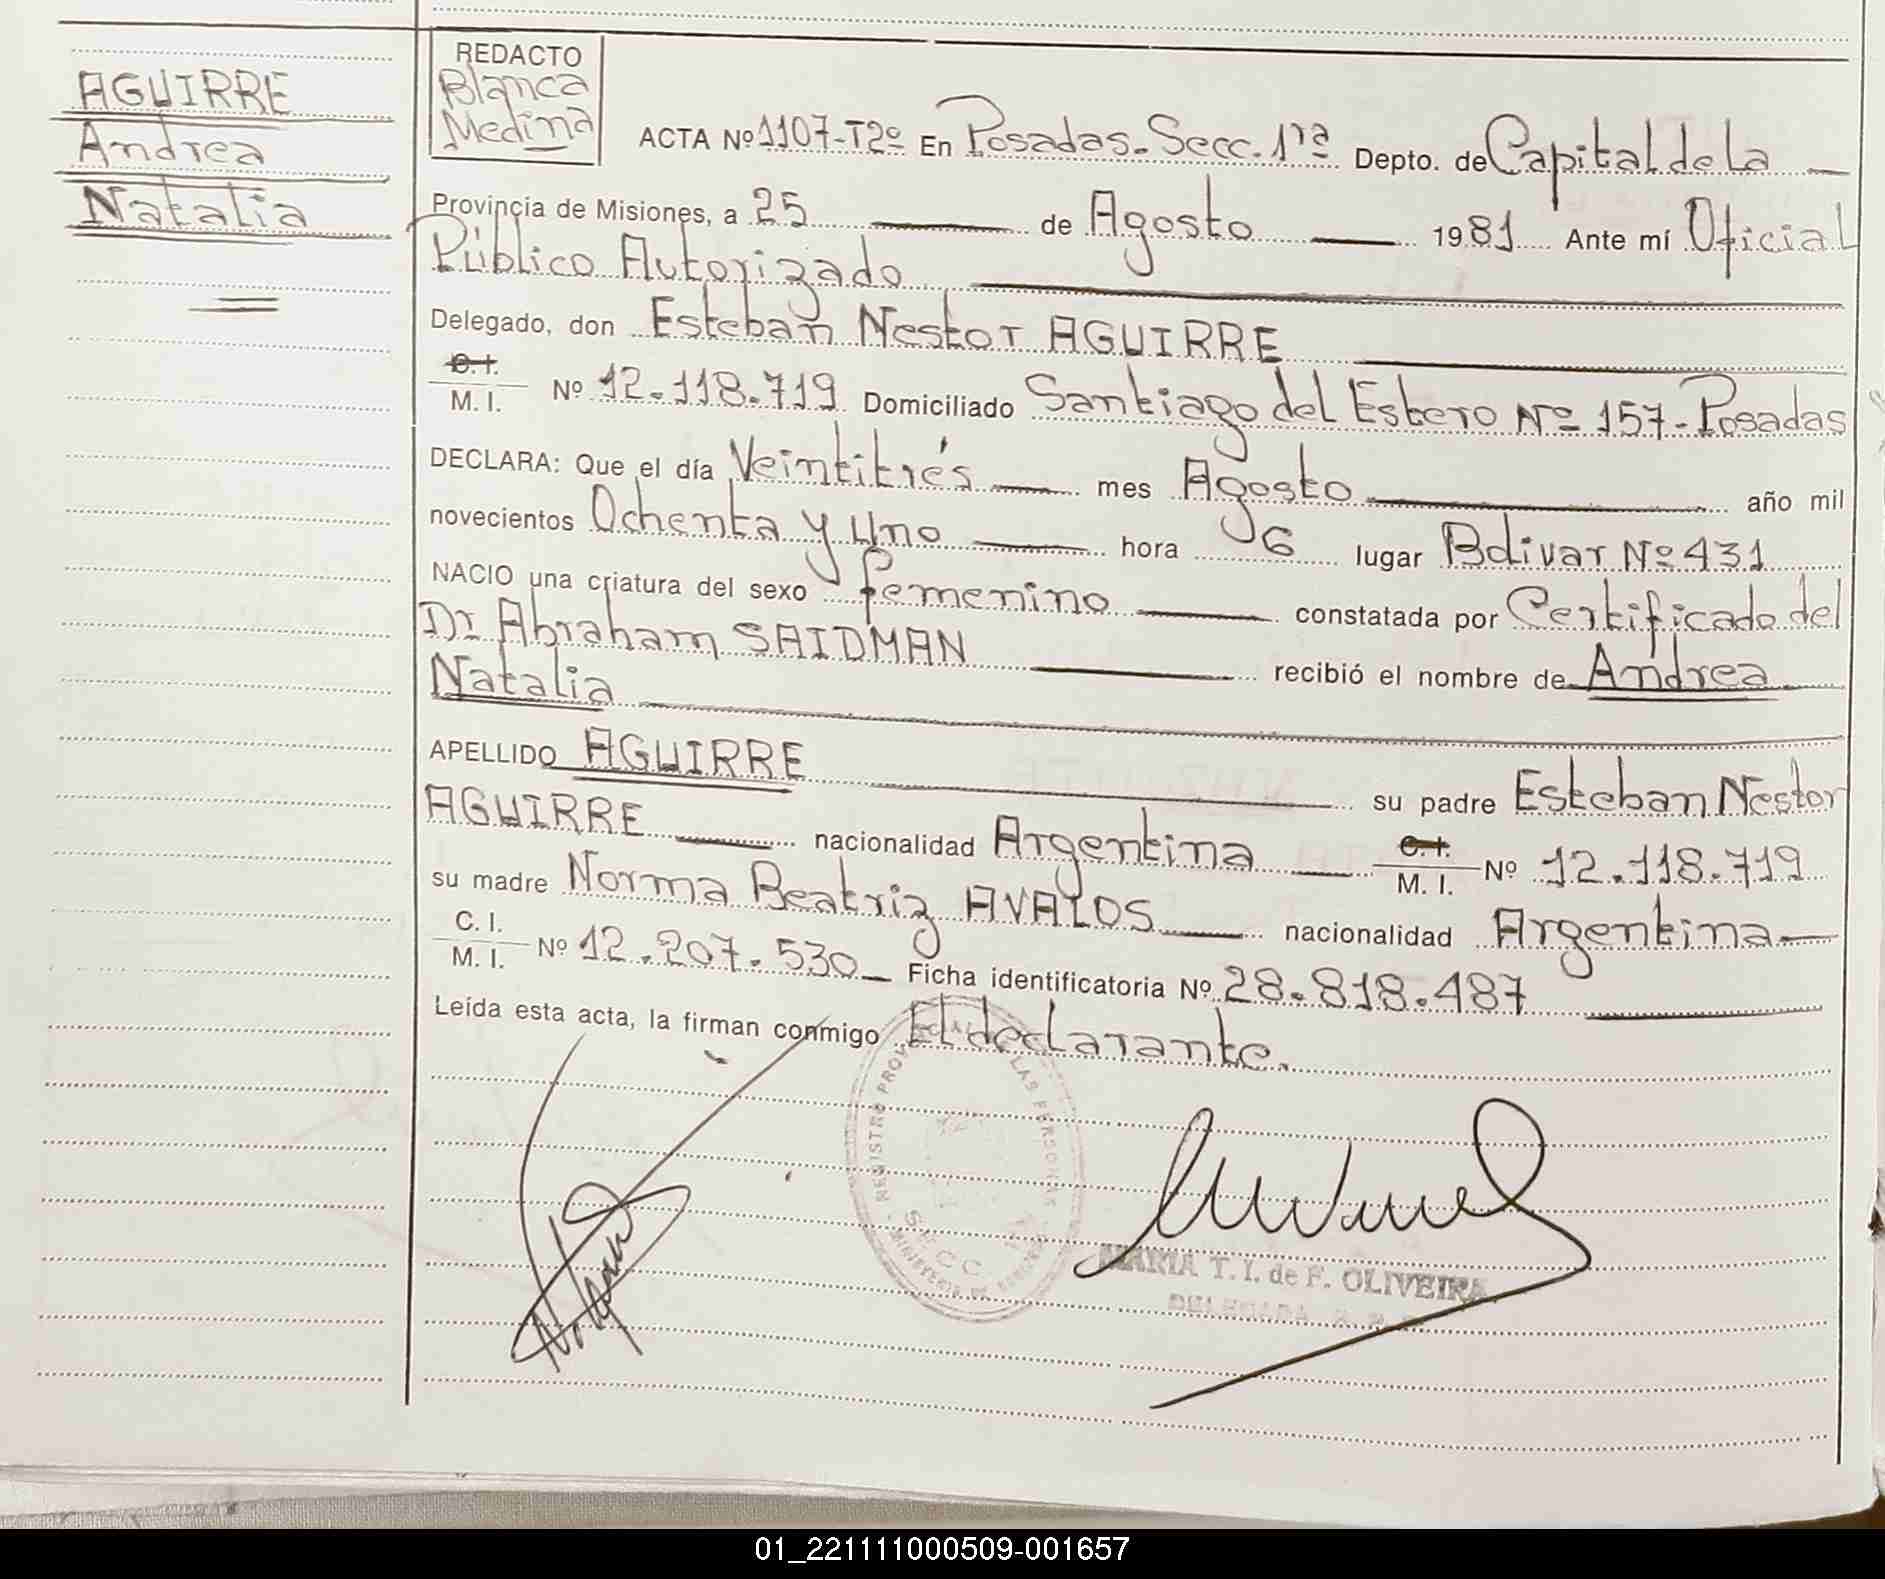 AGUIRRE
Andrea
Natalia
REDACTO
Blanca
Medina
ACTA Nº 1107-T2º En Posadas-Secc. 1ra Depto. de Capital de la
Provincia de Misiones, a 25 de Agosto 1981 Ante mí Oficial
Público Autorizado
Delegado, don Esteban Nestor AGUIRRE
C.I.
M. I. Nº 12.118.719 Domiciliado Santiago del Estero Nº 157-Posadas
DECLARA: Que el día Veintitrés mes Agosto año mil
novecientos Ochenta y Uno hora 6 lugar Bolivar Nº 431
NACIO una criatura del sexo femenino constatada por Certificado del
Dr Abraham SAIDMAN recibió el nombre de Andrea
Natalia
APELLIDO AGUIRRE su padre Esteban Nestor
AGUIRRE nacionalidad Argentina C.I. M. I. Nº 12.118.719
su madre Norma Beatriz AVALOS nacionalidad Argentina
C. I.
M. I. Nº 12.207.530 Ficha identificatoria Nº 28.818.487
Leída esta acta, la firman conmigo El declarante.
REGISTRO PROV LAS PERSONAS
SECC
MARIA T. I. de F. OLIVEIRA
DELEGADA
01_221111000509-001657